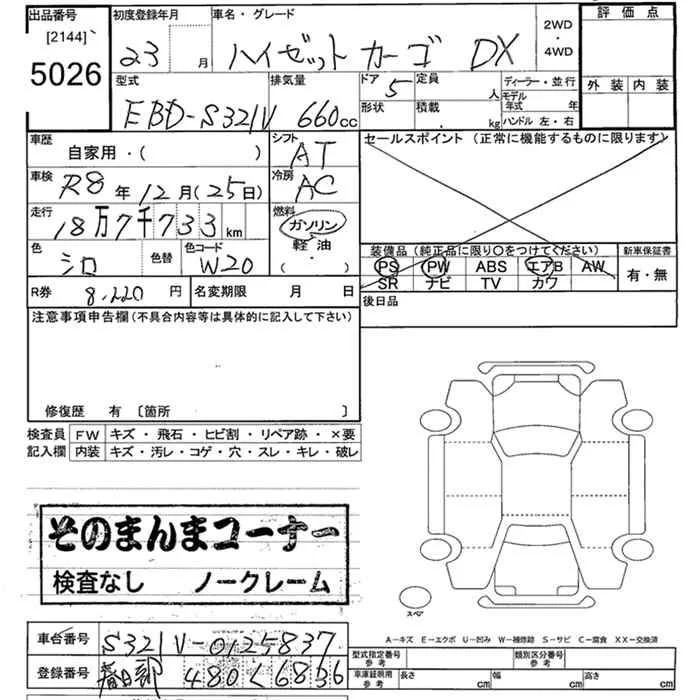 出品番号 初度登録年月 車名・グレード 2WD・4WD 評価点
[2144]
5026 23月 ハイゼットカーゴ DX
外装 内装
型式 排気量 ドア 定員 ディーラー・並行
EBD-S321V 660cc 5 人 モデル年式 年
形状 積載 kg ハンドル 左・右
車歴 シフト セールスポイント (正常に機能するものに限ります)
自家用・( ) AT
車検 R8年12月(25日) 冷房 AC
走行 18万7千733km 燃料 ガソリン
軽油
( ・ )
色 シロ 色替 色コード W20
装備品(純正品に限り〇をつけてください) 新車保証書
PS PW ABS エアB AW 有・無
SR ナビ TV カワ
R券 8,220円 名変期限 月 日 後日品
注意事項申告欄(不具合内容等は具体的に記入して下さい)
修復歴 有 〔箇所 〕
検査員 FW キズ・飛石・ヒビ割・リペア跡・×要
記入欄 内装 キズ・汚レ・コゲ・穴・スレ・キレ・破レ
そのまんまコーナー
検査なし ノークレーム
スペア
A－キズ E－エクボ U－凹み W－補修跡 S－サビ C－腐食 XX－交換済
車台番号 S321V-0125837
型式指定番号 参考 類別区分番号 参考
登録番号 春日部 480 く 6836
車庫証明用 参考 長さ cm 幅 cm 高さ cm